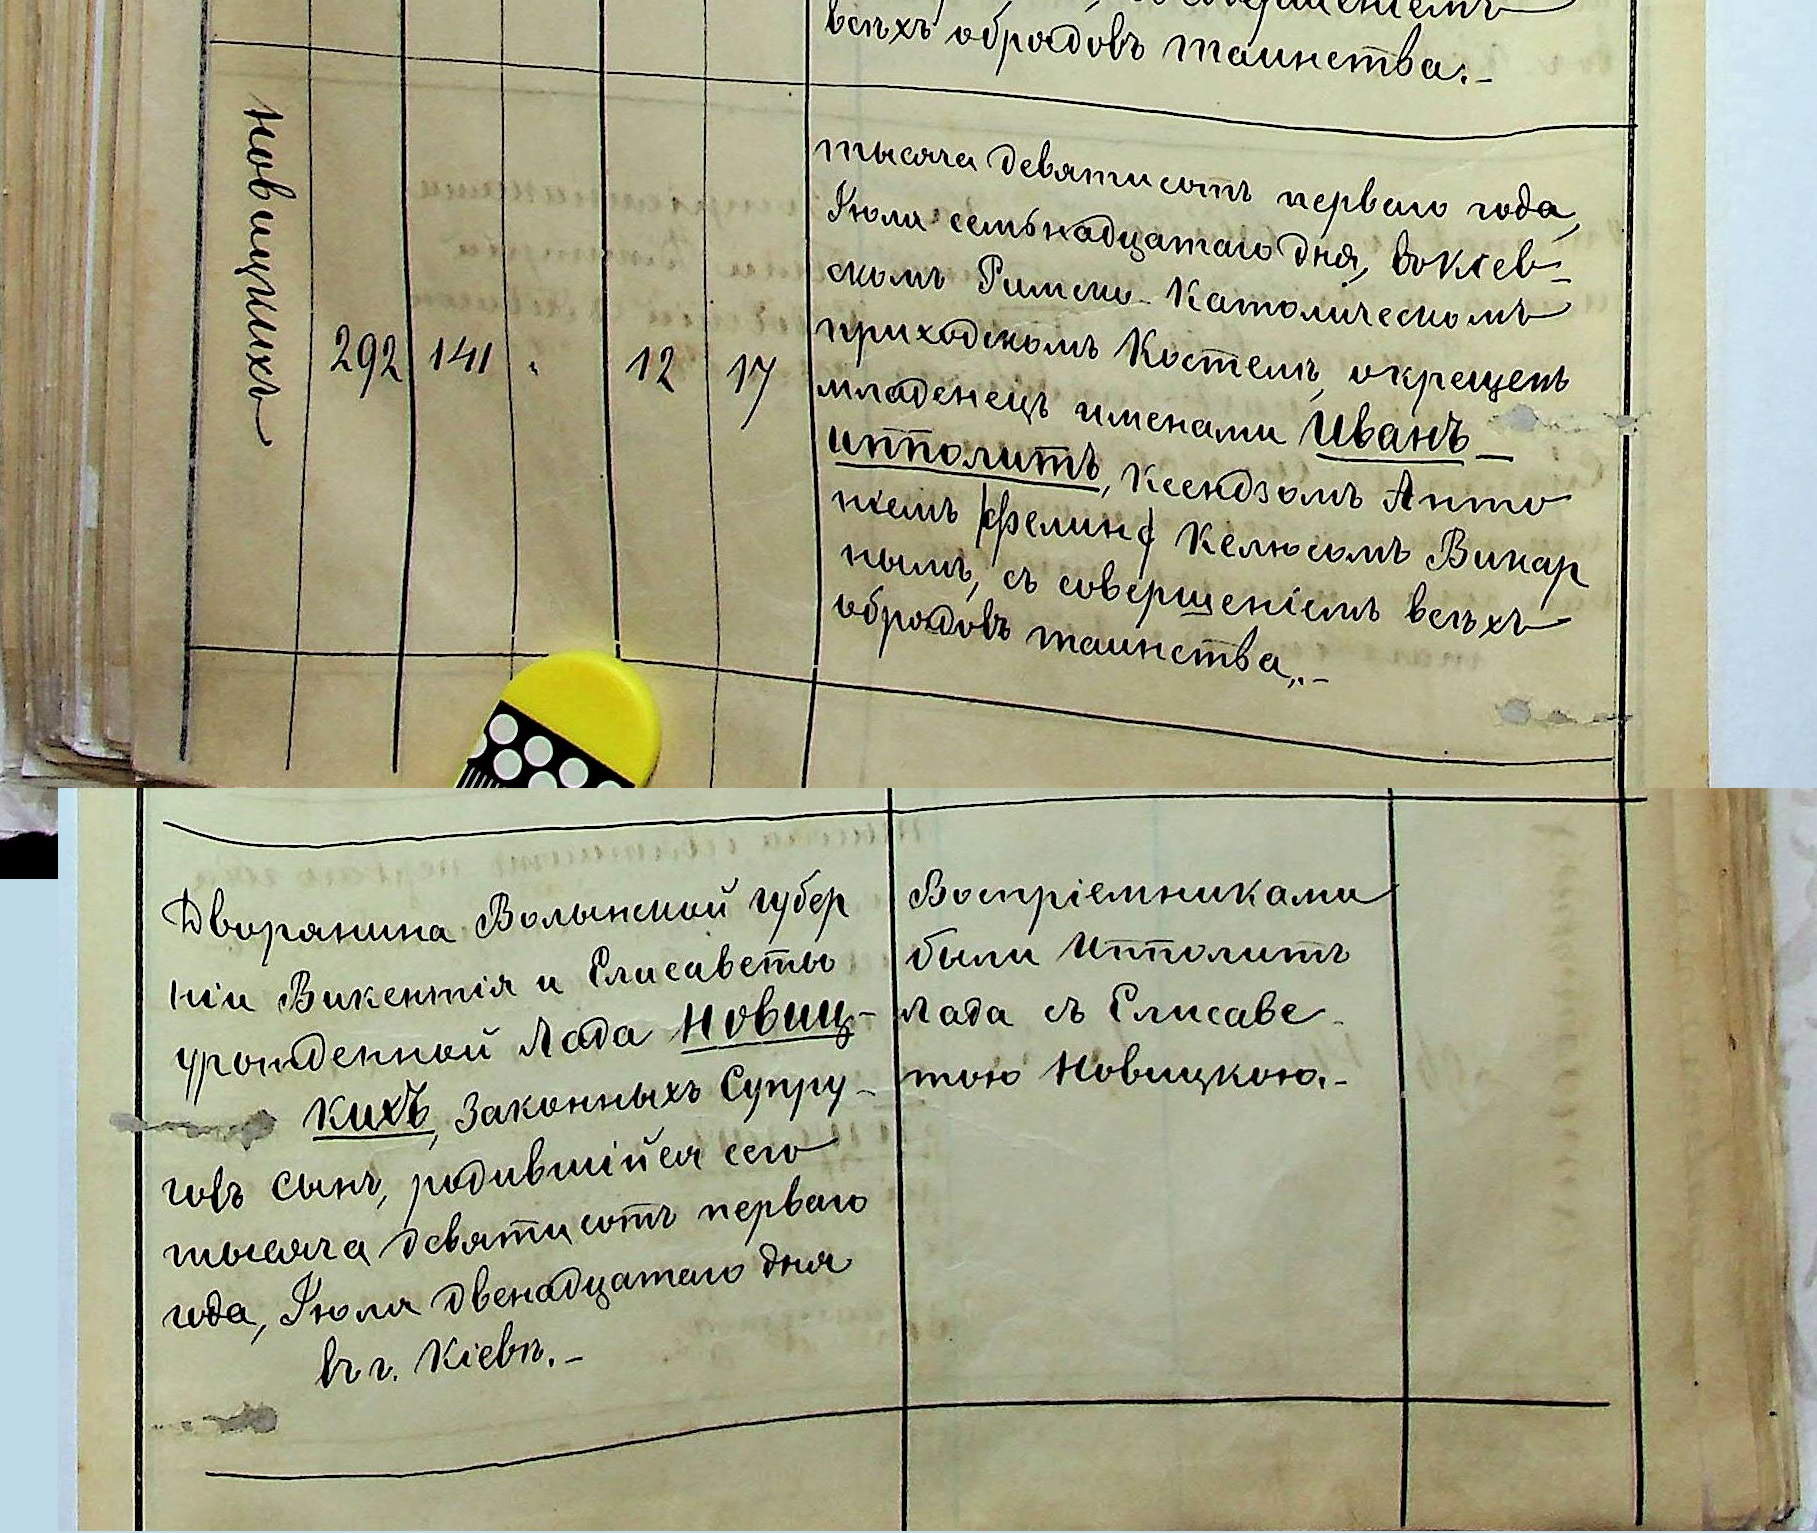 всѣхъ обрядовъ таинства.-
Новицкихъ
292 141 " 12 17
тысяча девятисотъ перваго года,
Іюля семьнадцатаго дня, въ Кіев-
скомъ Римско-Католическомъ
приходскомъ Костелѣ, окрещенъ
младенецъ именами Иванъ-
Ипполитъ, Ксендзомъ Анто
ніемъ (Фелинъ) Келюсомъ Викар
нымъ, съ совершеніемъ всѣхъ
обрядовъ таинства.-
Дворянина Волынской губер
ніи Викентія и Елисаветы
урожденной Лада Новиц-
кихъ, законныхъ Супру-
говъ сынъ, родившійся сего
тысяча девятисотъ перваго
года, Іюля двенадцатаго дня
въ г. Кіевѣ.-
Воспріемниками
были Ипполитъ
Лада съ Елисаве-
тою Новицкою.-